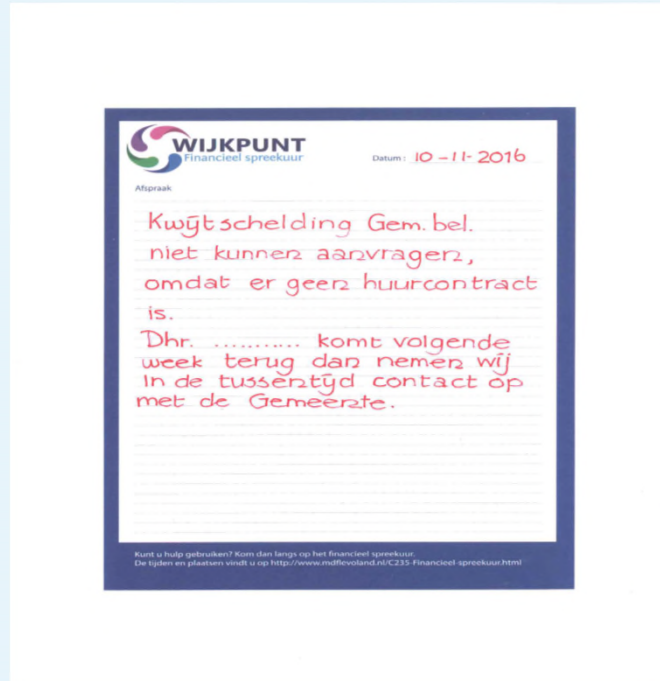 WIJKPUNT
Financieel spreekuur
Datum: 10-11-2016
Afspraak
Kwijtschelding Gem. bel.
niet kunnen aanvragen,
omdat er geen huurcontract
is.
Dhr. ........... komt volgende
week terug dan nemen wij
In de tussentijd contact op
met de Gemeente.
Kunt u hulp gebruiken? Kom dan langs op het financieel spreekuur.
De tijden en plaatsen vindt u op http://www.mdflevoland.nl/C235-Financieel-spreekuur.html